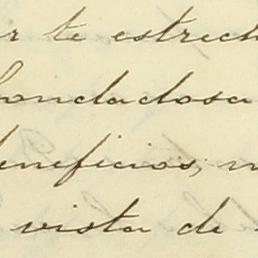 r te estrech
bondadosa
beneficios, n
vista de